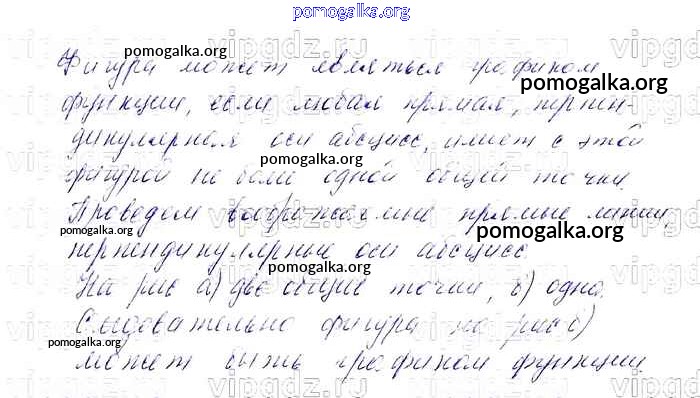 pomogalka.org
Фигура может являться графиком
функции, если любая прямая, перпен-
дикулярная оси абсцисс, имеет с этой
фигурой не более одной общей точки.
Проведем воображаемые прямые линии,
перпендикулярные оси абсцисс.
На рис а) две общие точки, б) одна.
Следовательно фигура на рис б)
может быть графиком функции
pomogalka.org
pomogalka.org
pomogalka.org
pomogalka.org
pomogalka.org
pomogalka.org
pomogalka.org
vipgdz.ru